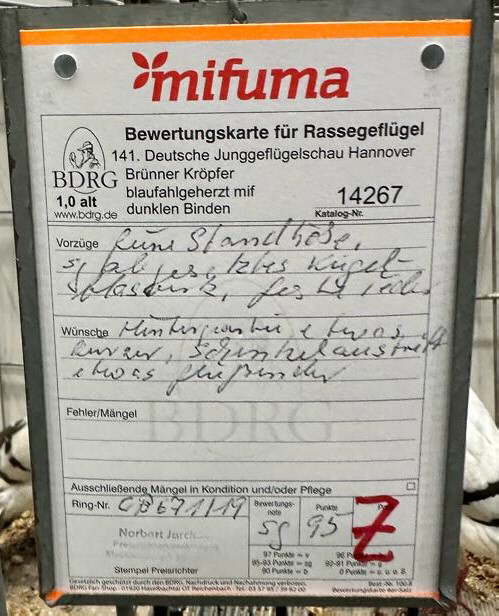 mifuma
Bewertungskarte für Rassegeflügel
141. Deutsche Junggeflügelschau Hannover
BDRG
Brünner Kröpfer
1,0 alt
blaufahlgeherzt mif
14267
www.bdrg.de
dunklen Binden
Katalog-Nr.
Vorzüge feine Standhöhe,
sg abgesetztes Kugel-
blaswerk,
Wünsche Hinterpartie etwas
kürzer, Schenkelaustritt
etwas fließender
Fehler/Mängel
BDRG
Ausschließende Mängel in Kondition und/oder Pflege
Ring-Nr.
Bewertungs-note
sg
Punkte
95
Z
Norbert
97 Punkte = v
95-93 Punkte = sg
90 Punkte = b
92-91 Punkte = g
0 Punkte = u, o. B.
Stempel Preisrichter
Gesetzlich geschützt durch den BDRG, Nachdruck und Nachahmung verboten.
Best.-Nr. 100-R